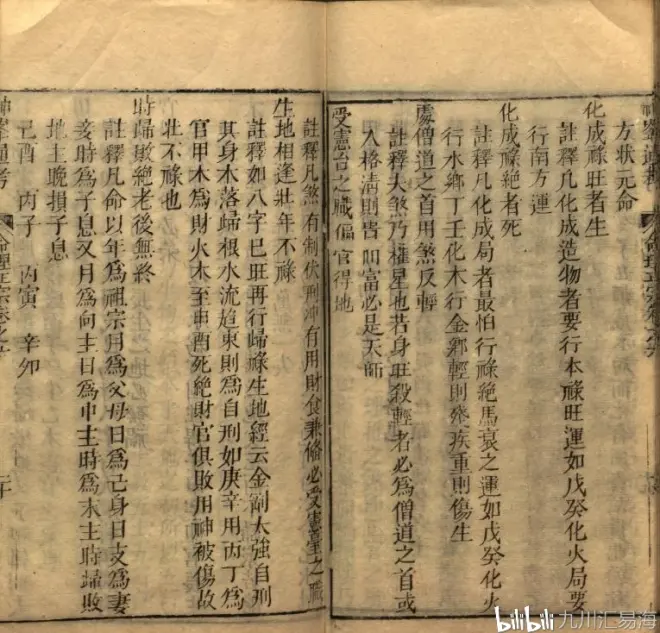 方状元命
化成祿旺者生
註釋凡化成造物者要行本祿旺運如戊癸化火局要
行南方運
化成祿絕者死
註釋凡化成局者最怕行祿絕馬衰之運如戊癸化火
行水鄉丁壬化木行金鄉輕則殘疾重則傷生
處僧道之首用煞反輕
註釋夫煞乃權星也若身旺殺輕者必為僧道之首或
入格清則皆叫富必是天師
受憲台之職偏官得地
註釋凡煞有制伏刑沖有用財食兼俻必受憲臺之職
生地相逢壯年不祿
註釋如八字巳旺再行歸祿生地經云金剛太強自刑
其身木落歸根水流趋東則為自刑如庚辛用丙丁為
官甲木為財火木至申酉死絕財官俱敗用神被傷故
壯不祿也
時歸敗絕老後無終
註釋凡命以年為祖宗月為父母日為己身日支為妻
妾時為子息又月為向主日為中主時為末主時歸敗
地主晚損子息
己酉 丙子 丙寅 辛卯
神峯通考 命理正宗卷之六
bilibili 九川汇易海